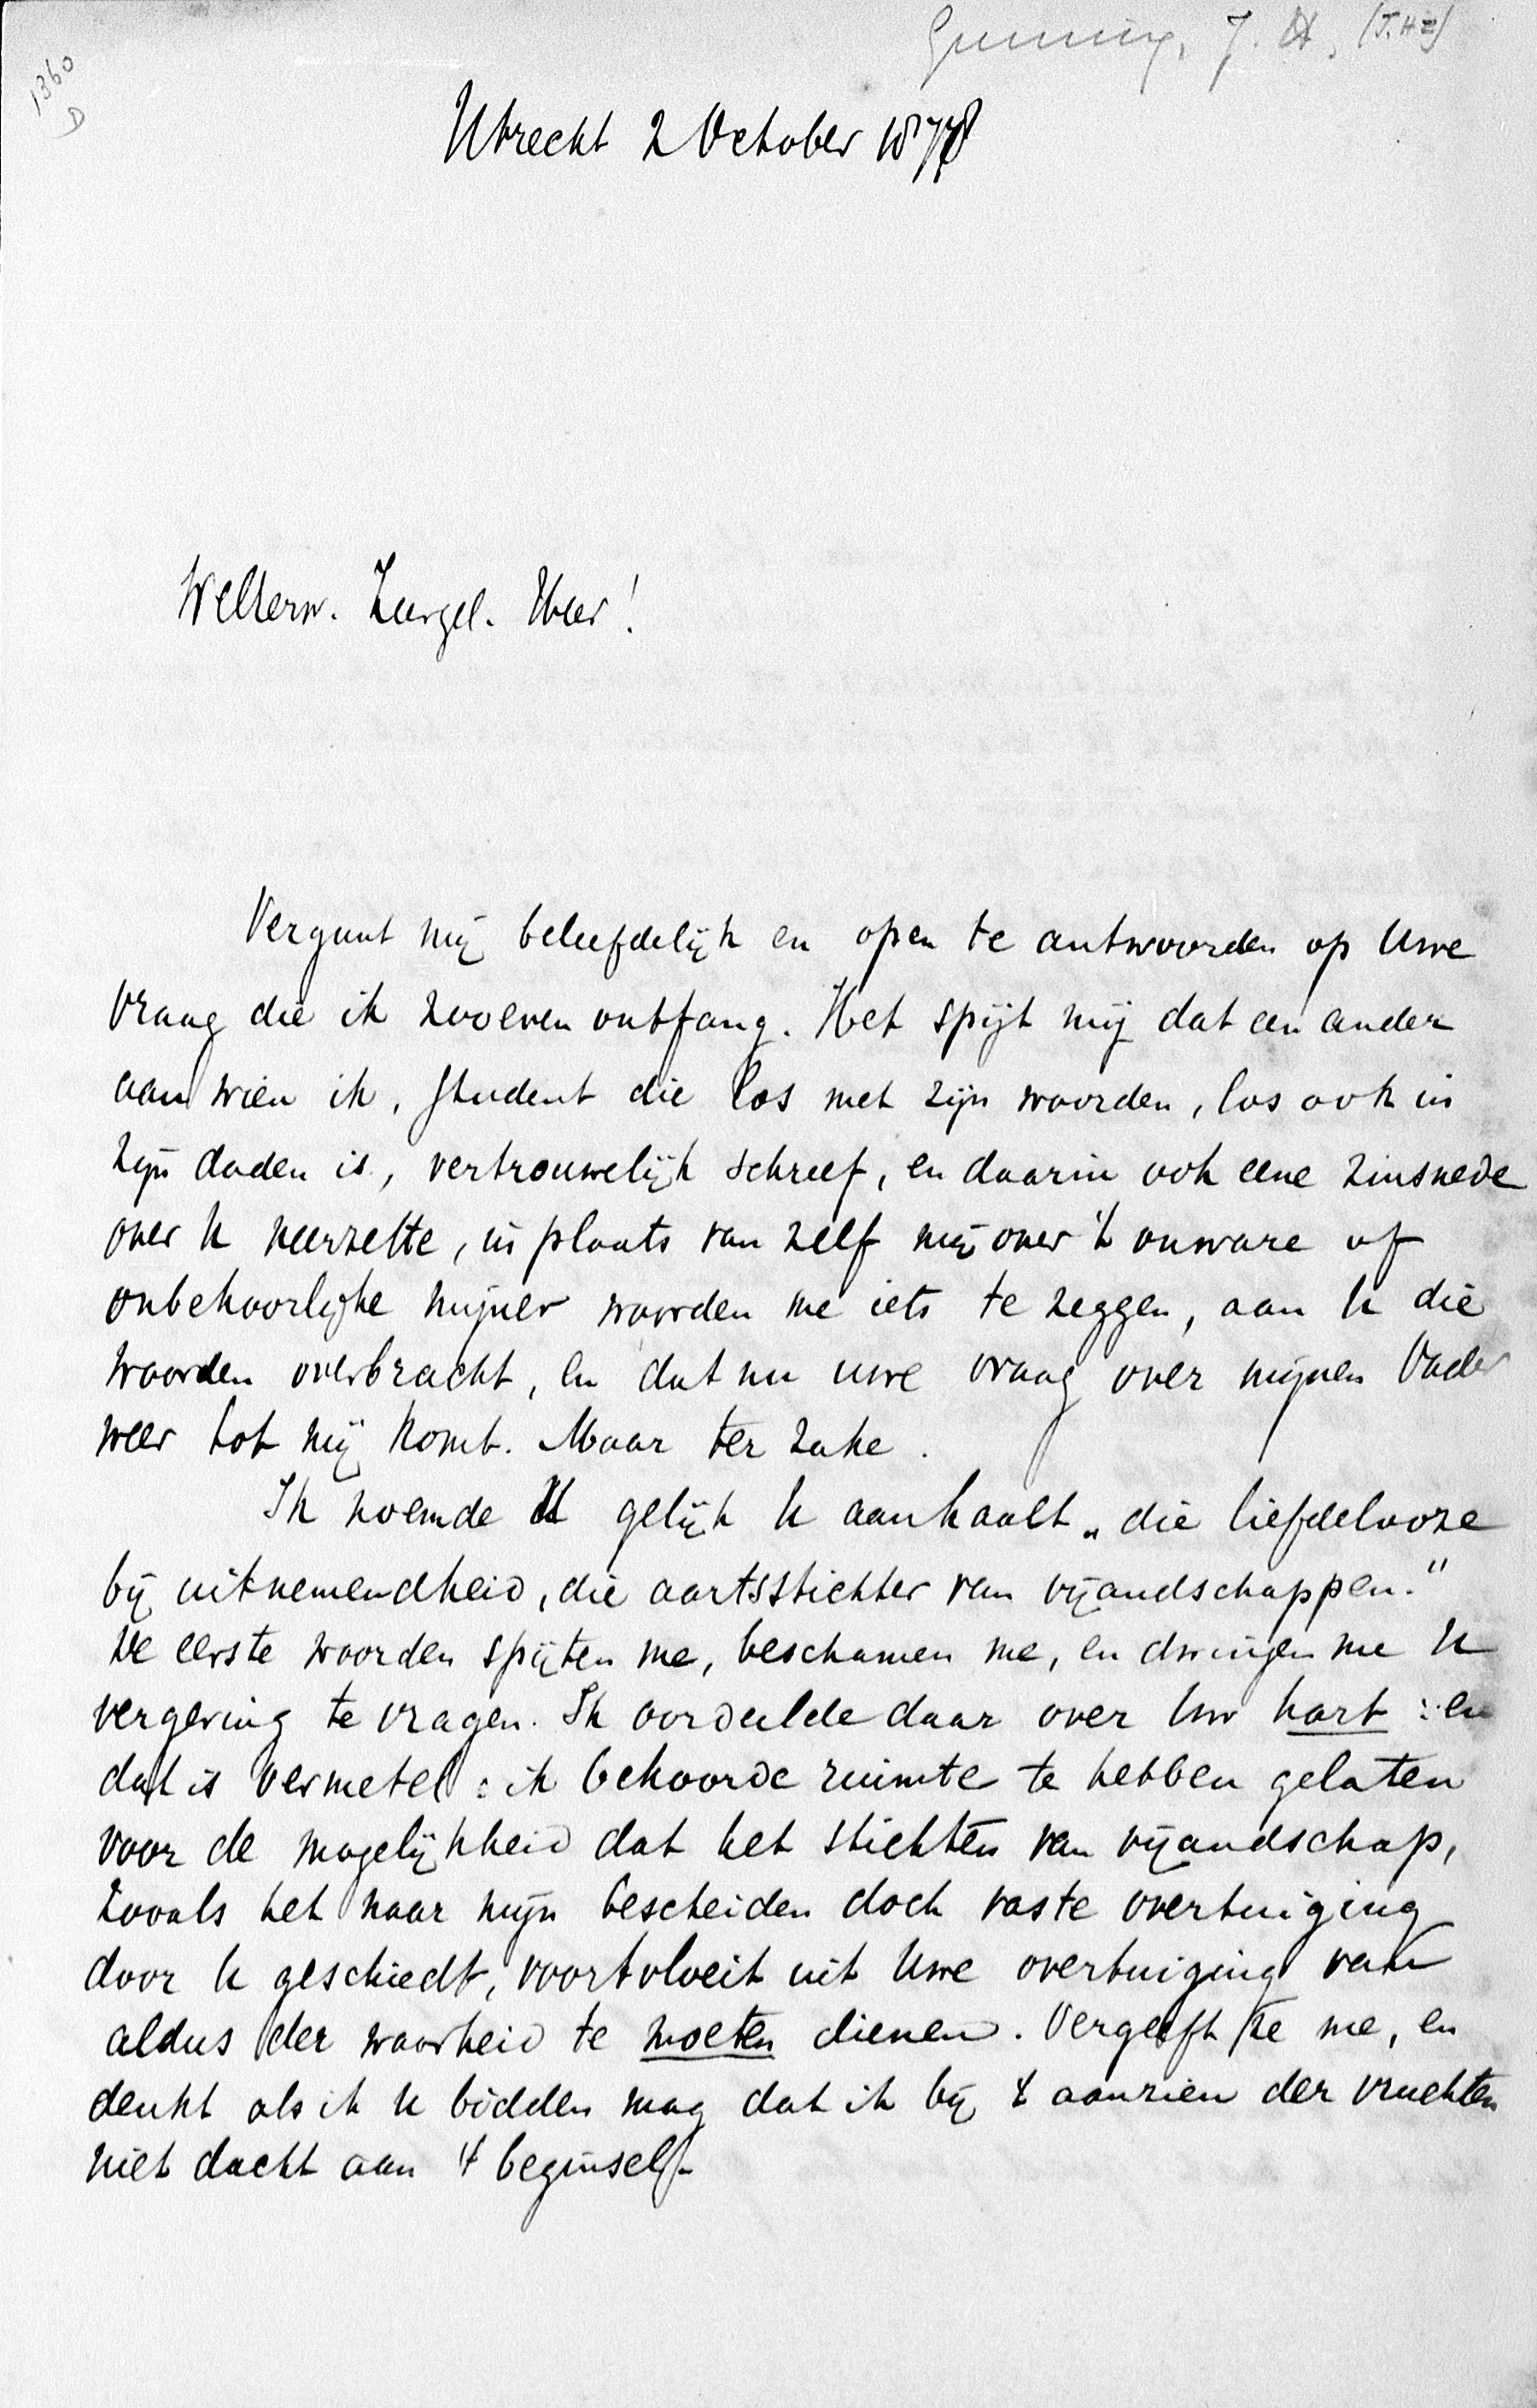 Gunning, J. H. (J.Hz)
1360
D
Utrecht 2 October 1878
WelEerw. Zeergel. Heer!
Vergunt mij beleefdelijk en open te antwoorden op Uwe
vraag die ik zooeven ontfang. Het spijt mij dat een ander
aan wien ik, student die los met zijn woorden, los ook in
zijn daden is, vertrouwelijk schreef, en daarin ook eene zinsnede
over U neerzette, in plaats van zelf mij over 't onware of
onbehoorlijke mijner woorden me iets te zeggen, aan U die
woorden overbracht, en dat nu uwe vraag over mijnen Vader
weer tot mij komt. Maar ter zake.
Ik noemde U gelijk U aanhaalt „die liefdelooze
bij uitnemendheid, die aartsstichter van vijandschappen."
De eerste woorden spijten me, beschamen me, en dwingen me U
vergeving te vragen. Ik oordeelde daar over Uw hart: en
dat is vermetel: ik behoorde ruimte te hebben gelaten
voor de mogelijkheid dat het stichten van vijandschap,
zooals het naar mijn bescheiden doch vaste overtuiging
door U geschiedt, voortvloeit uit Uwe overtuiging van
aldus der waarheid te moeten dienen. Vergeeft ze me, en
denkt als ik U bidden mag dat ik bij 't aanzien der vruchten
niet dacht aan 't beginsel.